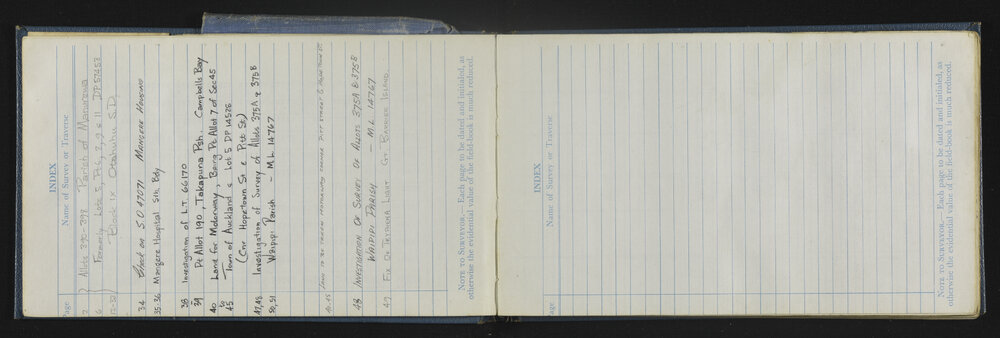 INDEX
Page Name of Survey or Traverse
2 } Allots 396-397 Parish of Manurewa
6 } Formerly Lots 5, Pt 6, 7, 9 & 11 DP 57452
Block IX Otahuhu S.D.
34 Check on S.O 47071 Mangere Housing
35-36 Mangere Hospital Sth. Bdy
38 Investigation of L.T. 66170
39 Pt Allot 190, Takapuna Psh. Campbells Bay
40 Land for Motorway, Being Pt Allot 7 of Sec 45
to Town of Auckland & Lot 5 DP 14526
45 (Cnr Hopetown St & Pitt St)
47,48 Investigation of Survey of Allots 375A & 375B
50,51 Waipipi Parish - M.L. 14767
40-45 LAND TO BE TAKEN MOTORWAY CORNER PITT STREET & HOPETOWN ST.
48 INVESTIGATION OF SURVEY OF ALLOTS 375A & 375B
WAIPIPI PARISH - M.L. 14767
49 FIX OF LIGHT GT. BARRIER ISLAND.
NOTE TO SURVEYOR.— Each page to be dated and initialed, as
otherwise the evidential value of the field-book is much reduced.
INDEX
Page Name of Survey or Traverse
NOTE TO SURVEYOR.— Each page to be dated and initialed, as
otherwise the evidential value of the field-book is much reduced.